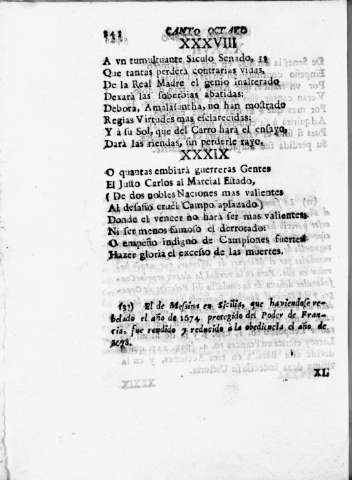 CANTO OCTAVO
XXXVIII
A vn tumultuante Siculo Senado,
Que tantas perderà contrarias vidas,
De la Real Madre el genio inalterado
Dexarà las soberbias abatidas:
Debora, Amalasuntha, no han mostrado
Regias Virtudes mas esclarecidas;
Y à su Sol, que del Carro harà el ensayo,
Darà las riendas, sin perderle rayo.
XXXIX
O quantas embiarà guerreras Gentes
El Justo Carlos al Marcial Estado,
(De dos nobles Naciones mas valientes
Al desafio cruel Campo aplazado)
Donde el vencer no harà ser mas valientes,
Ni ser menos famoso el derrotado:
O empeño indigno de Campiones fuertes
Hazer gloria el excesso de las muertes.
El de Messina en Sicilia, que haviendose re-
belado el año de 1674. protegido del Poder de Fran-
cia, fue rendido y reducido à la obediencia el año de
XL.